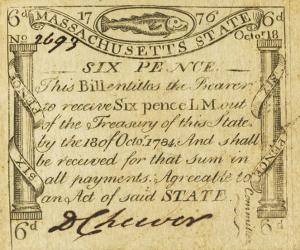 6d 17 76 6d
MASSACHUSETTS STATE
No 2693 Octor 18
SIX PENCE
This Bill entitles the Bearer
to receive Six pence L.M. out
of the Treasury of this State
by the 18 of Octo. 1784. And shall
be received for that sum in
all payments. Agreeable to
an Act of said STATE.
6d 6d
D Cheever
Committee
SIX PENCE
SIX PENCE